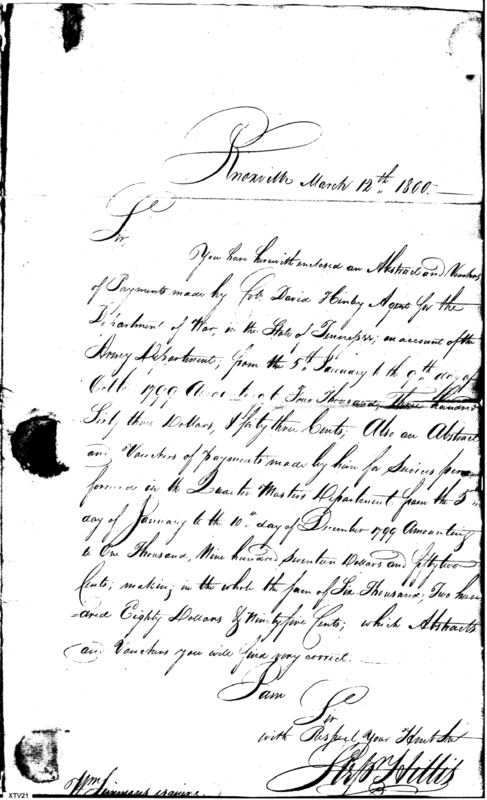 Knoxville March 12th 1800.
Sir,
You have herewith enclosed an Abstract and Vouchers
of Payments made by Colo. David Henley Agent for the
Department of War, in the State of Tennessee, on account of the
Army Department, from the 5th January to the 9th day of
Octbr 1799 Amounting to Four Thousand, three hundred
Sixty three Dollars, & forty three Cents; Also an Abstract
and Vouchers of payments made by him for Services per=
formed in the Quarter Masters Department from the 5th
day of January to the 10th day of December 1799 Amounting
to One Thousand, Nine hundred Seventeen Dollars and fifty two
Cents; making in the whole the sum of Six Thousand, Two hun
dred Eighty Dollars & Ninety five Cents; which Abstracts
and Vouchers you will find very correct.
I am
Sir
with Respect Your Hmbl Sert
Hillis
Wm Simmons esquire
XTV21